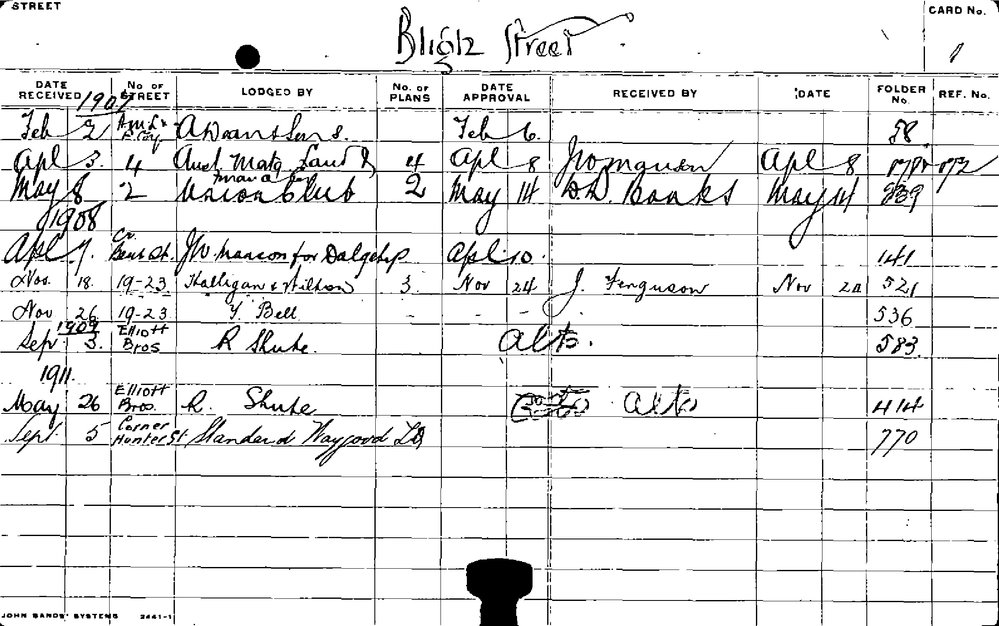 STREET
CARD No.
Bligh Street
1
DATE RECEIVED No. OF STREET LODGED BY No. OF PLANS DATE APPROVAL RECEIVED BY DATE FOLDER No. REF. No.
1907
Feb 2 A Dean & Sons. Feb 6. 58
Apl 3. 4 Aust. Land & 4 Apl 8 Apl 8
May 8 2 Union Club 2 May 14 Banks May 14
1908
Apl 7. Cr Bent St. for Dalgetys Apl 10. 141
Nov. 18. 19-23 Halligan & Wilton 3. Nov 24 J. Ferguson Nov 24 521
Nov 26 19-23 Y. Bell - - - 536
1909
Sep 3. Elliott Bros R Shute. Alts. 583
1911.
May 26 Elliott Bros. R. Shute Alts 414
Sept. 5 Corner Hunter St. Standard Waygood Ld 770
JOHN SANDS' SYSTEMS 2441-1